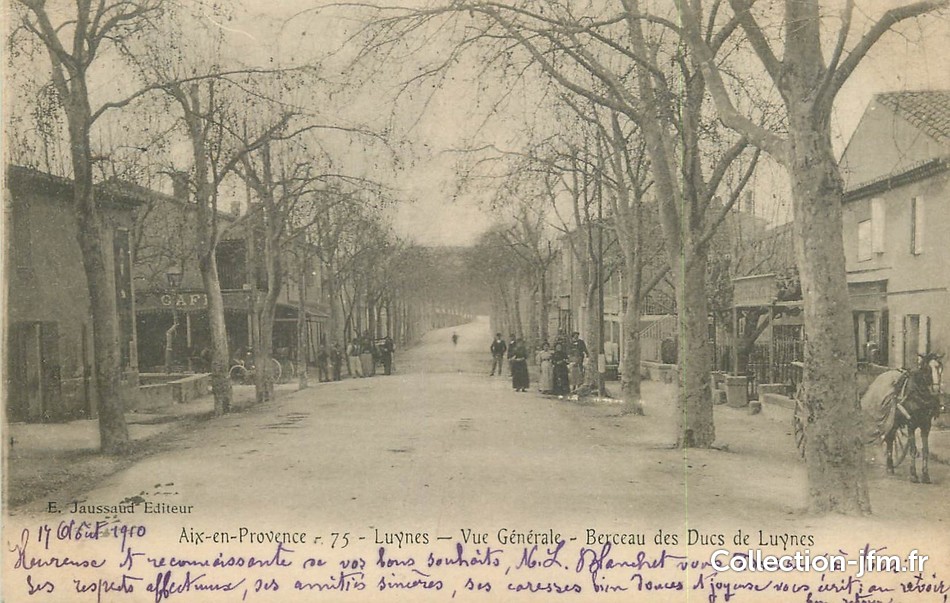 CAFÉ
E. Jaussaud Editeur
17 Août 1910
Aix-en-Provence - 75 - Luynes — Vue Générale - Berceau des Ducs de Luynes
Collection-jfm.fr
Heureuse et reconnaissante de vos bons souhaits, M. L. Blanchet vous à tous
ses respects affectueux, ses amitiés sincères, ses caresses bien douces et joyeuse vous écrit: au revoir,